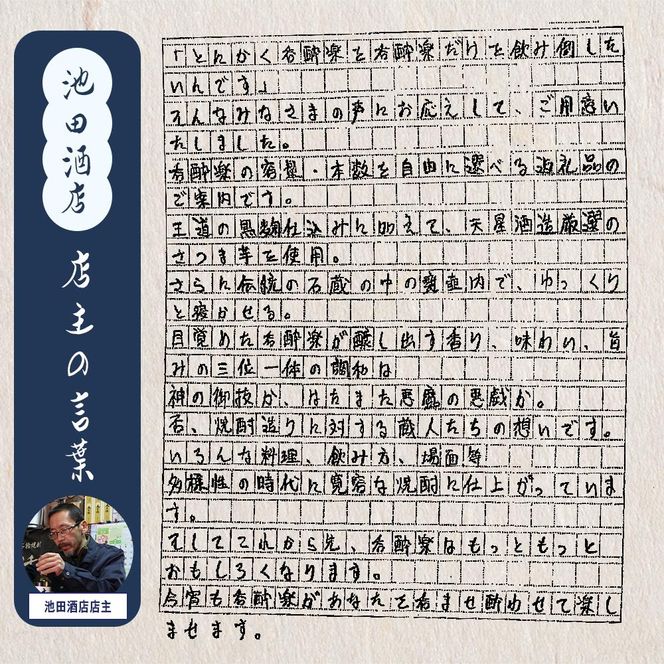 池田酒店
店主の言葉
池田酒店店主
「とにかく呑酔楽を呑酔楽だけを飲み倒した
いんです」
そんなみなさまの声にお応えして、ご用意い
たしました。
呑酔楽の容量・本数を自由に選べる返礼品の
ご案内です。
王道の黒麹仕込みに加えて、天星酒造厳選の
さつま芋を使用。
さらに伝統の石蔵の中の甕壷内で、ゆっくり
と寝かせる。
目覚めた呑酔楽が醸し出す香り、味わい、旨
みの三位一体の調和は
神の御技か、はたまた悪魔の悪戯か。
否、焼酎造りに対する蔵人たちの想いです。
いろんな料理、飲み方、場面等
多様性の時代に寛容な焼酎に仕上がっていま
す。
そしてこれから先、呑酔楽はもっともっと
おもしろくなります。
今宵も呑酔楽があなたを呑ませ酔わせて楽し
ませます。